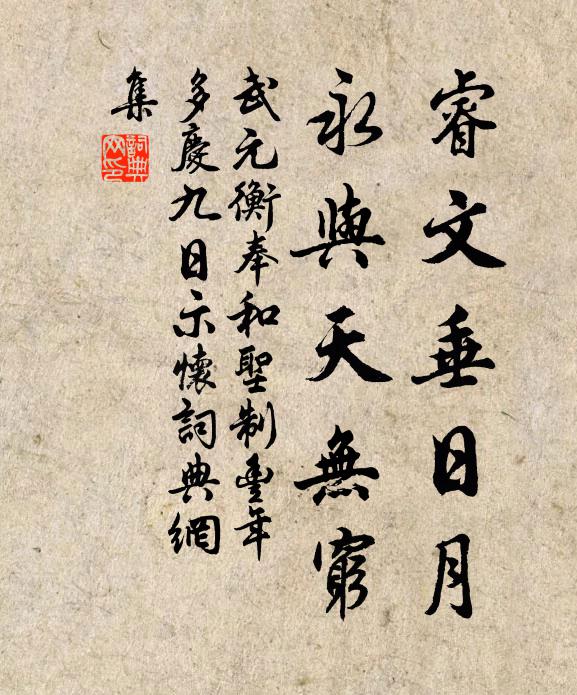 睿文垂日月
永與天無窮
武元衡奉和聖制豐年
多慶九日示懷詞典網
集
詞典網印